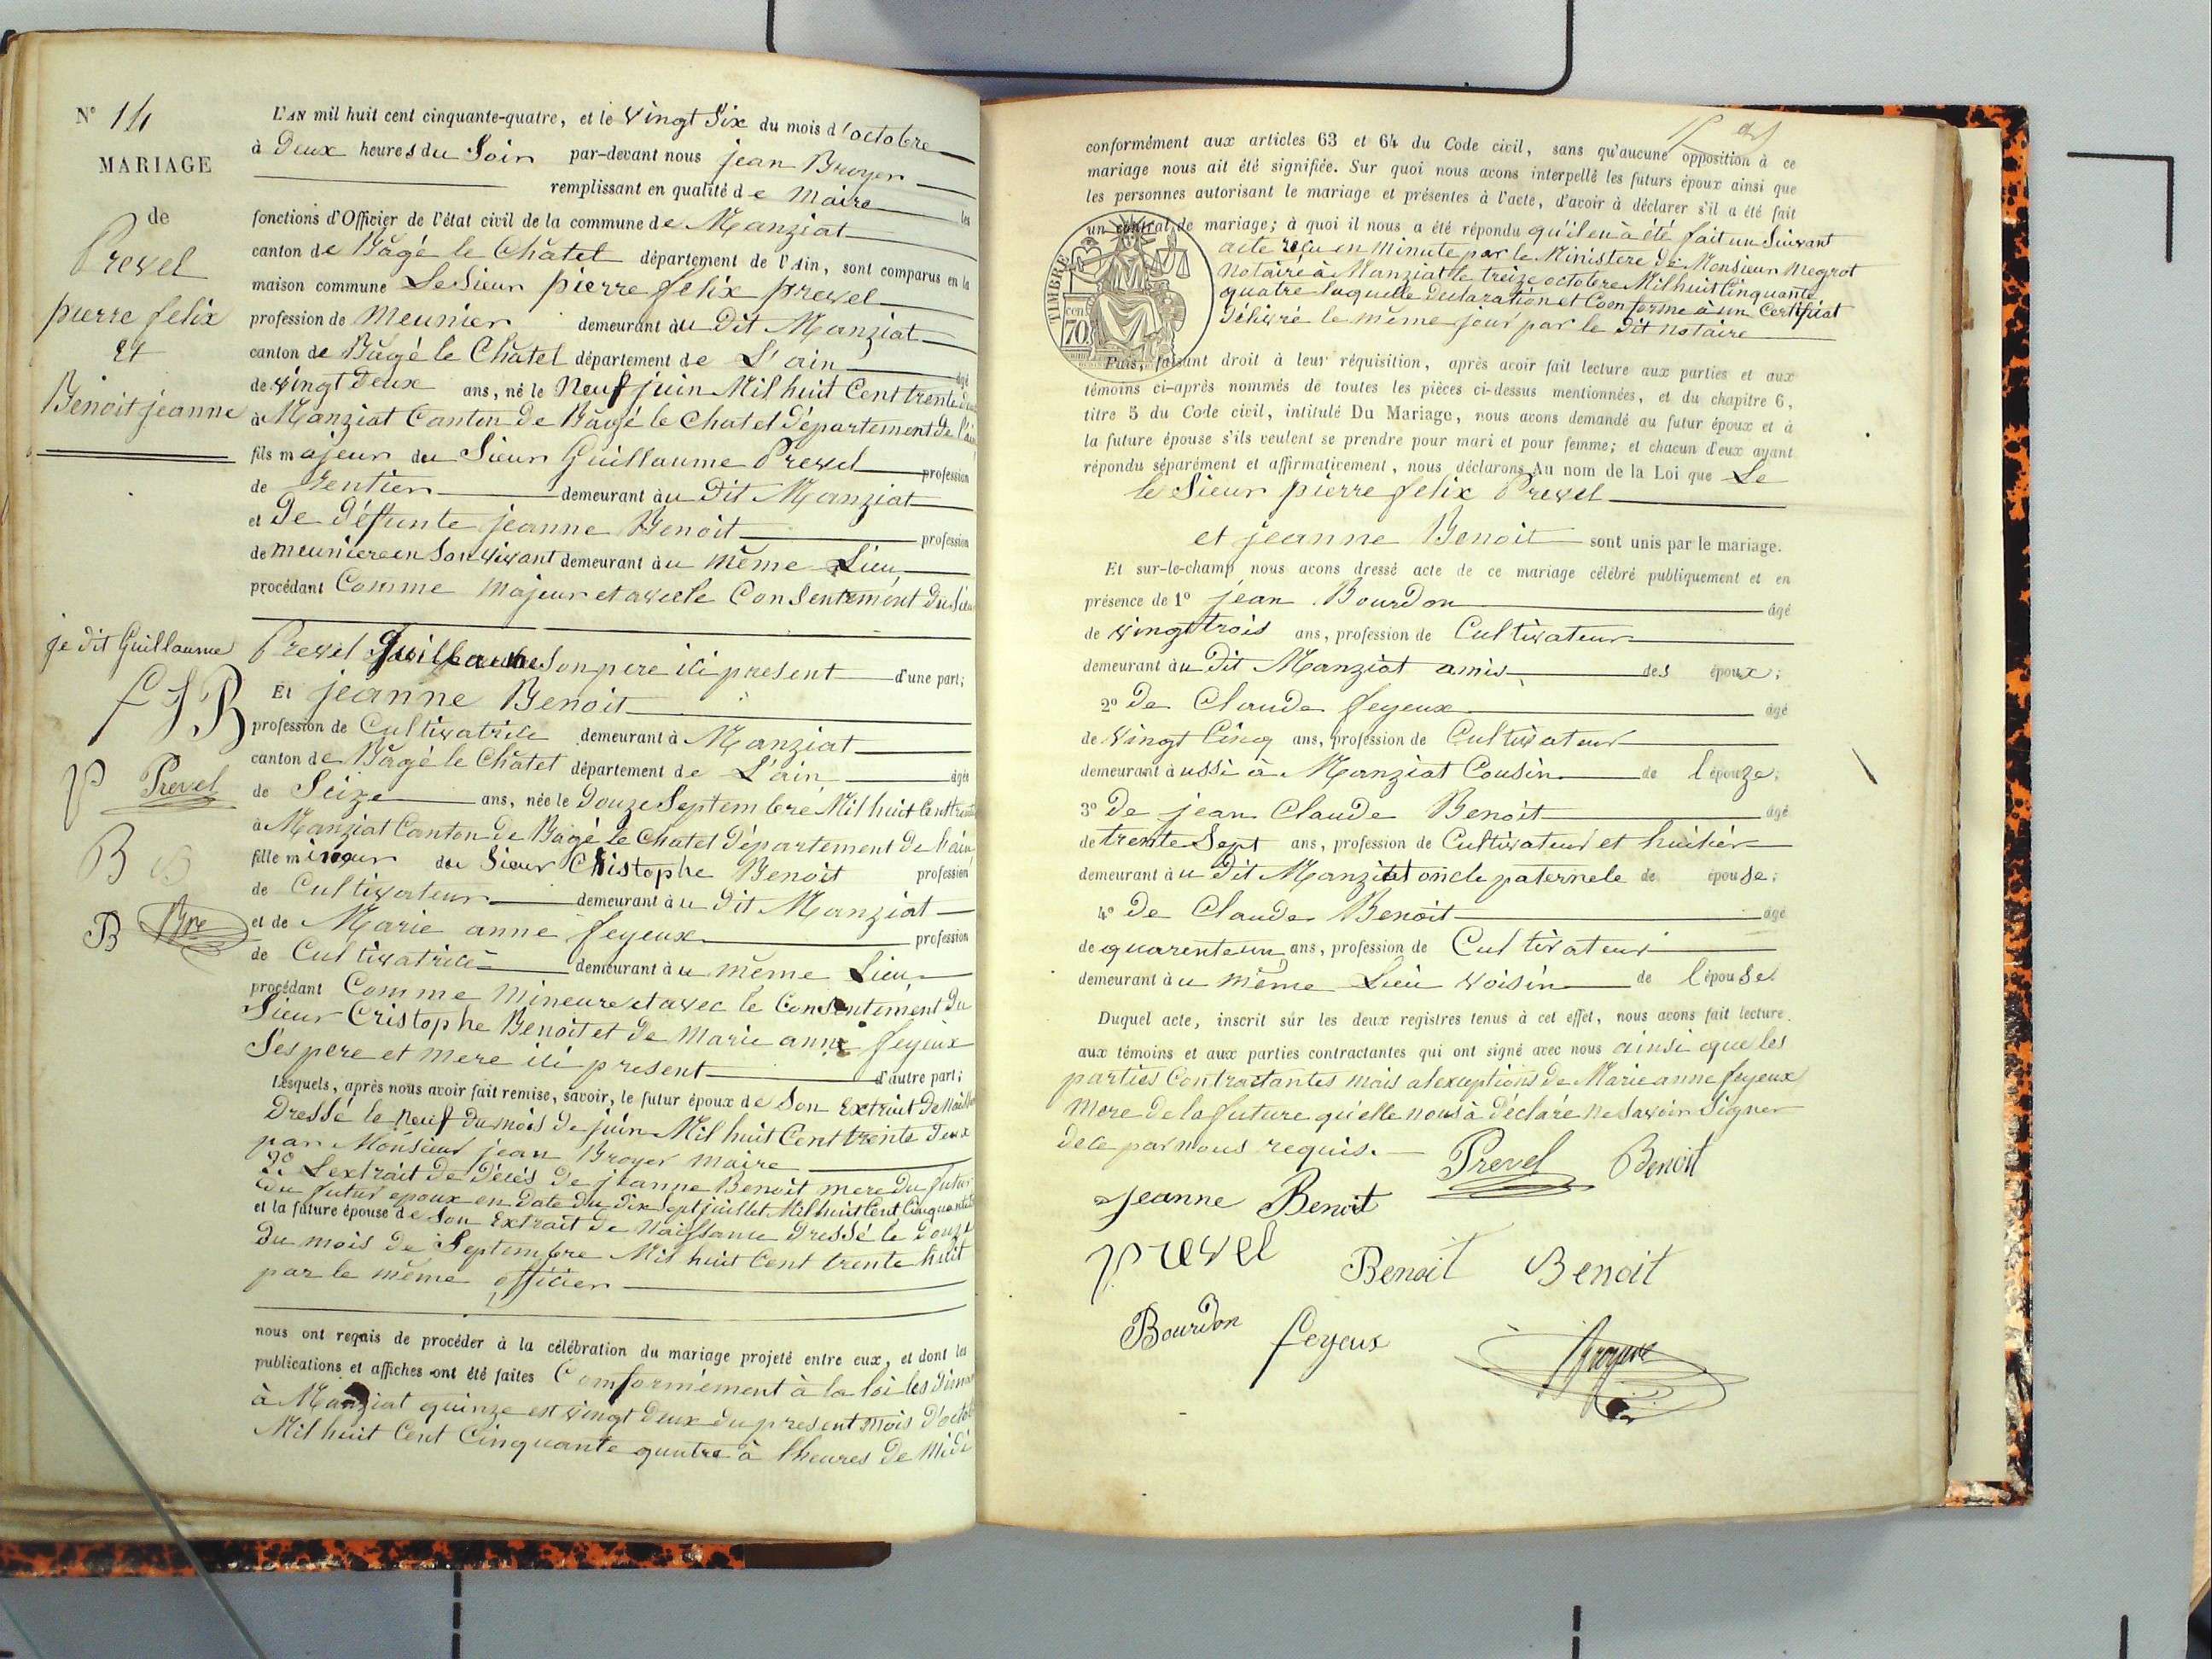 N° 14
MARIAGE
de
Prevel
pierre felix
et
Benoit jeanne
L'AN mil huit cent cinquante-quatre, et le vingt Six du mois d'octobre
à Deux heures du Soir par-devant nous jean Broyer
remplissant en qualité de Maire les
fonctions d'Officier de l'état civil de la commune de Manziat
canton de Bâgé le Châtel département de l'Ain, sont comparus en la
maison commune Le Sieur pierre felix prevel
profession de Meunier demeurant àu Dit Manziat
canton de Bâgé le Châtel département de L'ain âgé
de vingt Deux ans, né le Neuf juin Mil huit Cent trente Deux
à Manziat Canton De Bâgé le Chatel Département De l'ain
fils majeur du Sieur Guillaume Prevel profession
de Rentier demeurant àu Dit Manziat
et De Défunte jeanne Benoit profession
de meuniere en Son vivant demeurant àu même Lieu
procédant Comme Majeur et avec le Consentement du Sieur
je dit Guillaume
Prevel Guillaume Son pere ici present d'une part;
Et jeanne Benoit
profession de Cultivatrice demeurant à Manziat
canton de Bâgé le Châtel département de L'ain âgée
de Seize ans, née le Douze Septembre Mil huit Cent trente
à Manziat Canton De Bâgé le Chatel Département De l'ain
fille mineur du Sieur Christophe Benoit profession
de Cultivateur demeurant àu Dit Manziat
et de Marie anne feyeux profession
de Cultivatrice demeurant àu même Lieu
procédant Comme Mineure et avec le Consentement Du
Sieur Cristophe Benoit et De Marie anne feyeux
Ses pere et mere ici present d'autre part;
f J B
P Prevel
B B
B Bro
Lesquels, après nous avoir fait remise, savoir, le futur époux de Son Extrait De Naissance
Dressé le Neuf Du mois De juin Mil huit Cent trente Deux
par Monsieur jean Broyer Maire
2° L'extrait De Décés De jeanne Benoit mere Du futur
Du futur epoux en Date Du Dix Sept juillet Mil huit Cent Cinquante
et la future épouse de Son Extrait De Naissance Dressé le Douze
Du mois De Septembre Mil huit Cent trente huit
par le même officier
nous ont requis de procéder à la célébration du mariage projeté entre eux, et dont les
publications et affiches ont été faites Comformément à la loi les Diman
à Manziat quinze est vingt Deux Du present Mois D'octobre
Mil huit Cent Cinquante quatre à lheures De Midi
conformément aux articles 63 et 64 du Code civil, sans qu'aucune opposition à ce
mariage nous ait été signifiée. Sur quoi nous avons interpellé les futurs époux ainsi que
les personnes autorisant le mariage et présentes à l'acte, d'avoir à déclarer s'il a été fait
un contrat de mariage; à quoi il nous a été répondu qu'il en à été fait un Suivant
acte reçu en Minute par le Ministere De Monsieur Megrot
Notaire à Manziat le treize octobre Mil huit Cinquante
quatre laquelle Declaration et Coonforme à un Certifiat
Délivré le même jour par le Dit Notaire
TIMBRE
70
Puis, faisant droit à leur réquisition, après avoir fait lecture aux parties et aux
témoins ci-après nommés de toutes les pièces ci-dessus mentionnées, et du chapitre 6,
titre 5 du Code civil, intitulé Du Mariage, nous avons demandé au futur époux et à
la future épouse s'ils veulent se prendre pour mari et pour femme; et chacun d'eux ayant
répondu séparément et affirmativement, nous déclarons Au nom de la Loi que Le
le Sieur pierre felix Prevel
et jeanne Benoit sont unis par le mariage.
Et sur-le-champ nous avons dressé acte de ce mariage célébré publiquement et en
présence de 1° jean Bourdon âgé
de vingt trois ans, profession de Cultivateur
demeurant àu Dit Manziat amis des époux;
2° De Claude feyeux âgé
de Vingt Cinq ans, profession de Cultivateur
demeurant àussi à Manziat Cousin de l'épouze;
3° De jean Claude Benoit âgé
de trente Sept ans, profession de Cultivateur et huilier
demeurant àu Dit Manziat oncle paternele de épouse;
4° De Claude Benoit âgé
de quarente un ans, profession de Cultivateur
demeurant àu même Lieu Voisin de l'épouse
Duquel acte, inscrit sur les deux registres tenus à cet effet, nous avons fait lecture
aux témoins et aux parties contractantes qui ont signé avec nous ainsi que les
parties Contractantes mais alexceptions De Marie anne feyeux
Mere De la future qu'elle nous à déclaré Ne Savoir Signer
De ce par nous requis.
Prevel Benoit
jeanne Benoit
prevel Benoit Benoit
Bourdon feyeux Broyer